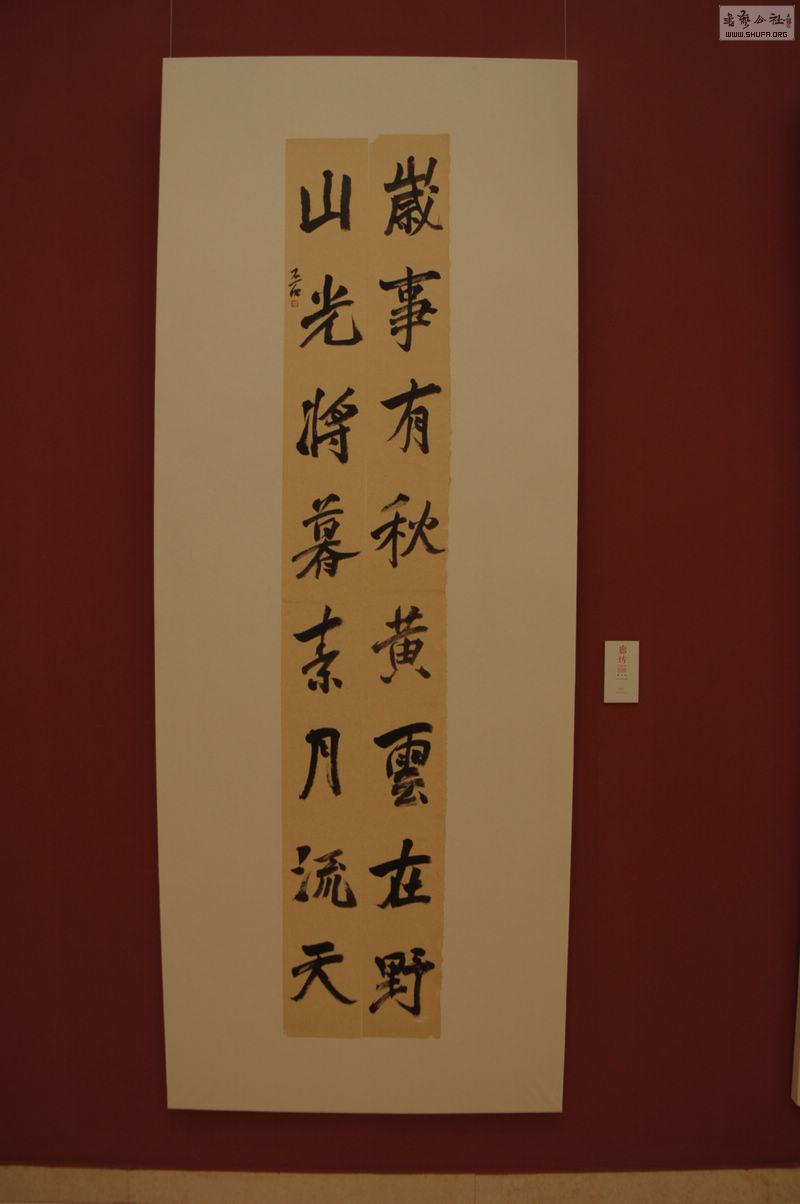 歲事有秋黃雲在野
山光將暮素月流天
廊坊
書藝公社
WWW.SHUFA.ORG